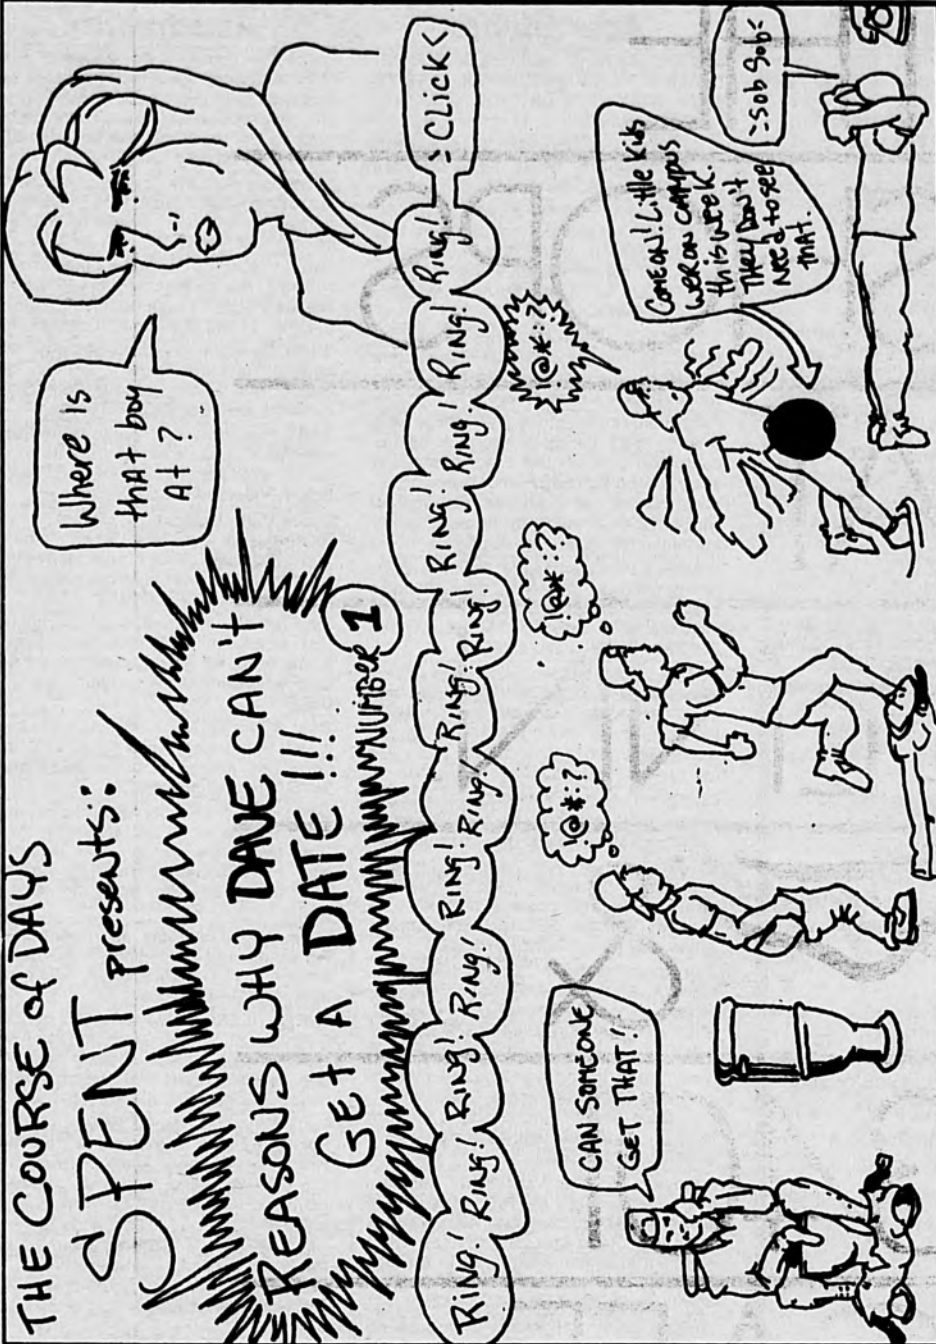 THE COURSE of DAYS
SPENT presents:
REASONS WHY DAVE CAN't
GET A DATE!!!
NUMBER 1
Where is
that boy
At?
Ring! Ring! Ring! Ring! Ring! Ring! Ring! Ring! Ring! Ring! Ring! Ring! >CLICK<
CAN SOMEONE
GET THAT!
!@*:?
!@*:?
!@*:?
COME ON! Little Kids
WER ON CAMPUS
this WEEK.
THEY DON'T
NEED to SEE
THAT.
~Sob Sob<